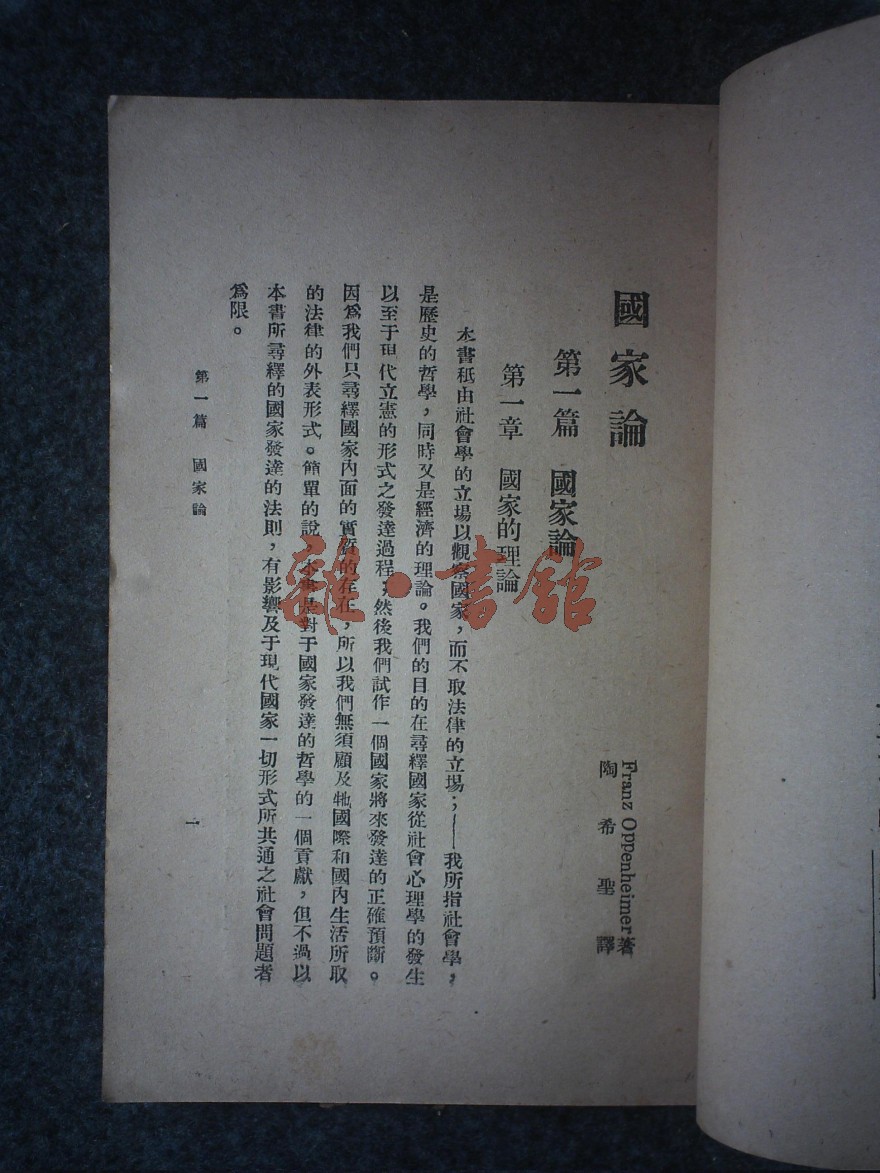 國家論
Franz Oppenheimer 著
陶希聖 譯
第一篇 國家論
第一章 國家的理論
本書秪由社會學的立場以觀察國家，而不取法律的立場；——我所指社會學，
是歷史的哲學，同時又是經濟的理論。我們的目的在尋繹國家從社會心理學的發生
以至于現代立憲的形式之發達過程；然後我們試作一個國家將來發達的正確預斷。
因爲我們只尋繹國家內面的實質的存在，所以我們無須顧及牠國際和國內生活所取
的法律的外表形式。簡單的說，本書是對于國家發達的哲學的一個貢獻，但不過以
本書所尋繹的國家發達的法則，有影響及于現代國家一切形式所共通之社會問題者
爲限。
第一篇 國家論
一
雜·書舘